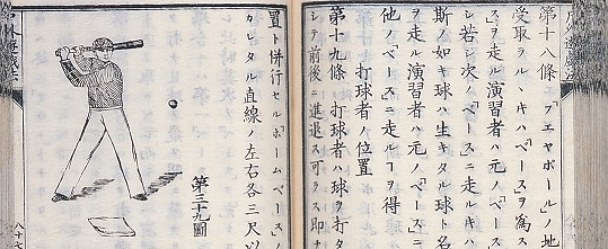 第十八條 「フエヤボール」ノ地
受取ラルヽキハ「ベース」ヲ爲ス
ス」ヲ走ル演習者ハ元ノ「ベース
シ若シ次ノ「ベース」ニ走ルキハ
斯ノ如キ球ハ生キタル球ト名
ヲ走ル演習者ハ元ノ「ベース」ニ
他ノ「ベース」ニ走ルヿヲ得
打球者ノ位置
第十九條 打球者ハ球ヲ打タ
シテ前後ニ進退ス可ラス即チ
置ト併行セル「ホームベース」ノ
カレタル直線ノ左右各三尺以
第三十九圖
戸外遊戯法
八十七